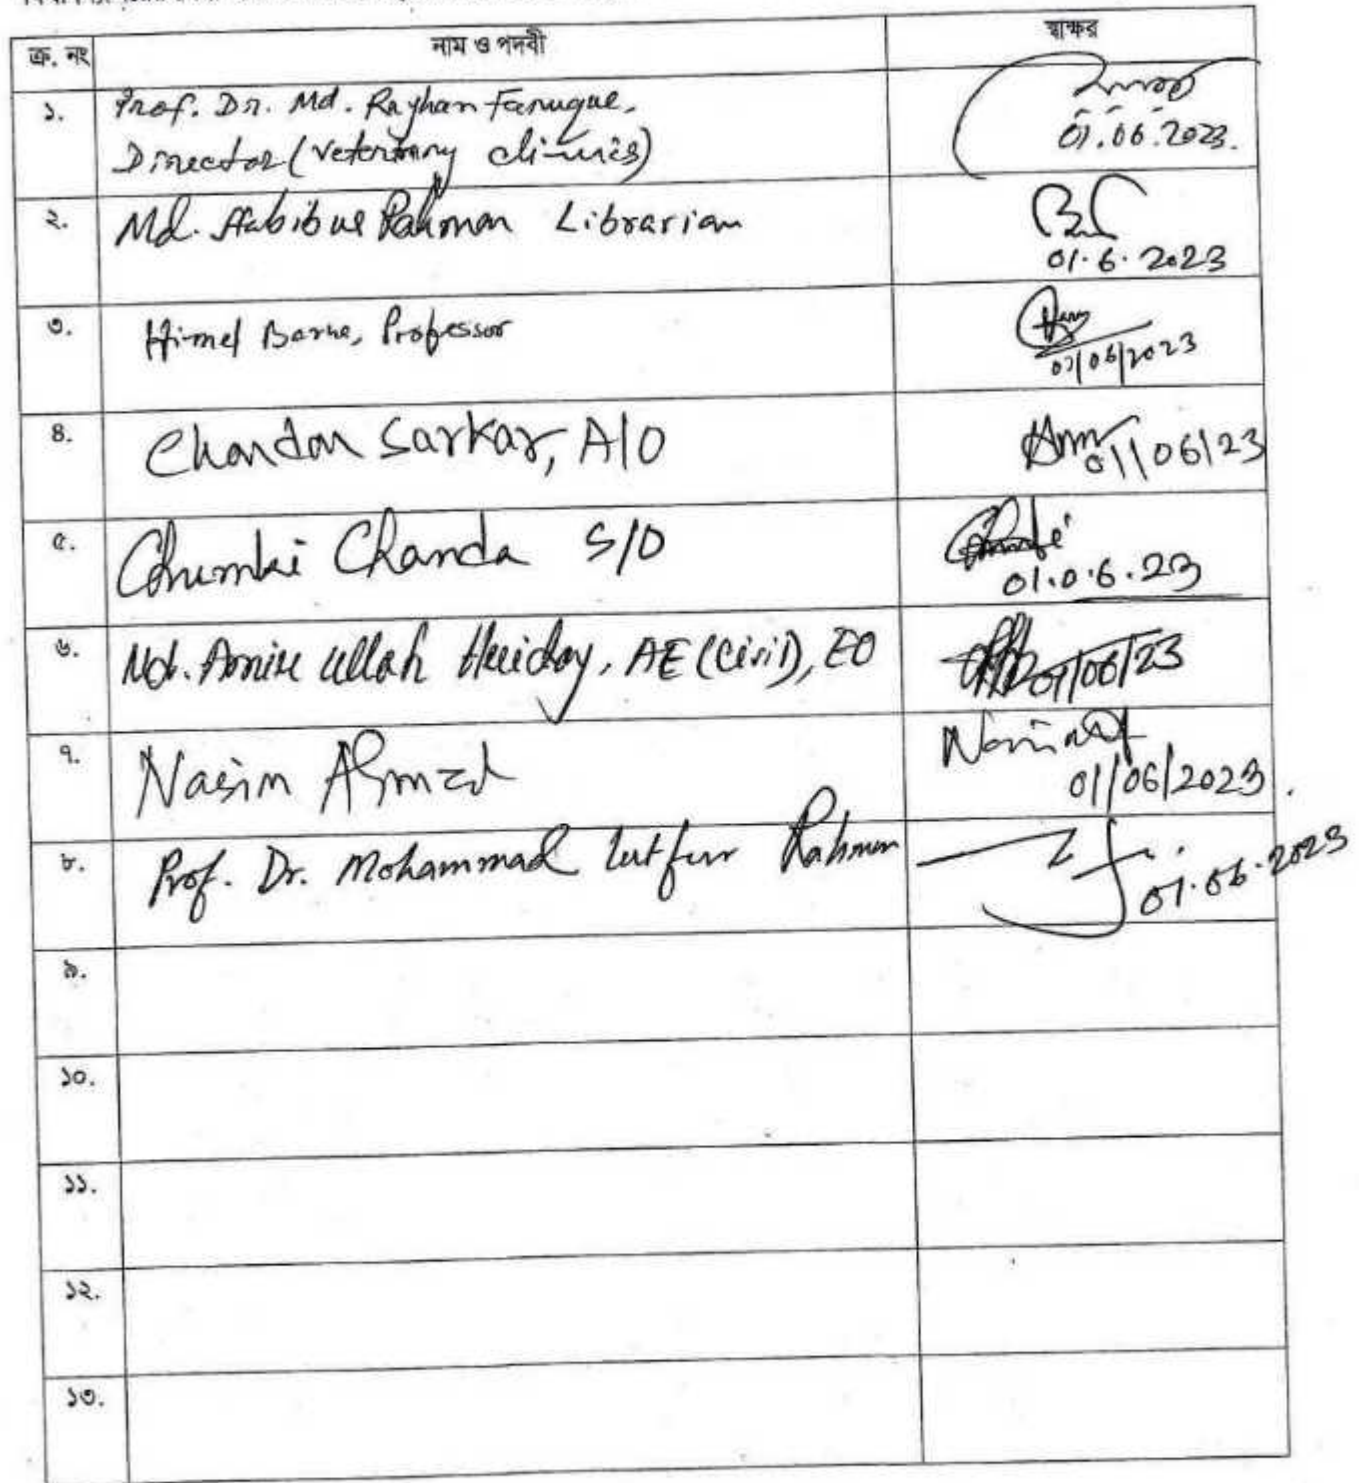 ক্র. নং নাম ও পদবী স্বাক্ষর
১. Prof. Dr. Md. Rayhan Faruque,
Director (veterinary clinics)
01.06.2023.
২. Md. Habibur Rahman Librarian
01.6.2023
৩. Himel Barua, Professor
01/06/2023
৪. Chandan Sarkar, A/O
01/06/23
৫. Chumki Chanda S/O
01.06.23
৬. Md. Amir ullah AE (Civil), EO
01/06/23
৭. Nasim Ahmed
01/06/2023
৮. Prof. Dr. Mohammad Lutfur Rahman
01.06.2023
৯.
১০.
১১.
১২.
১৩.